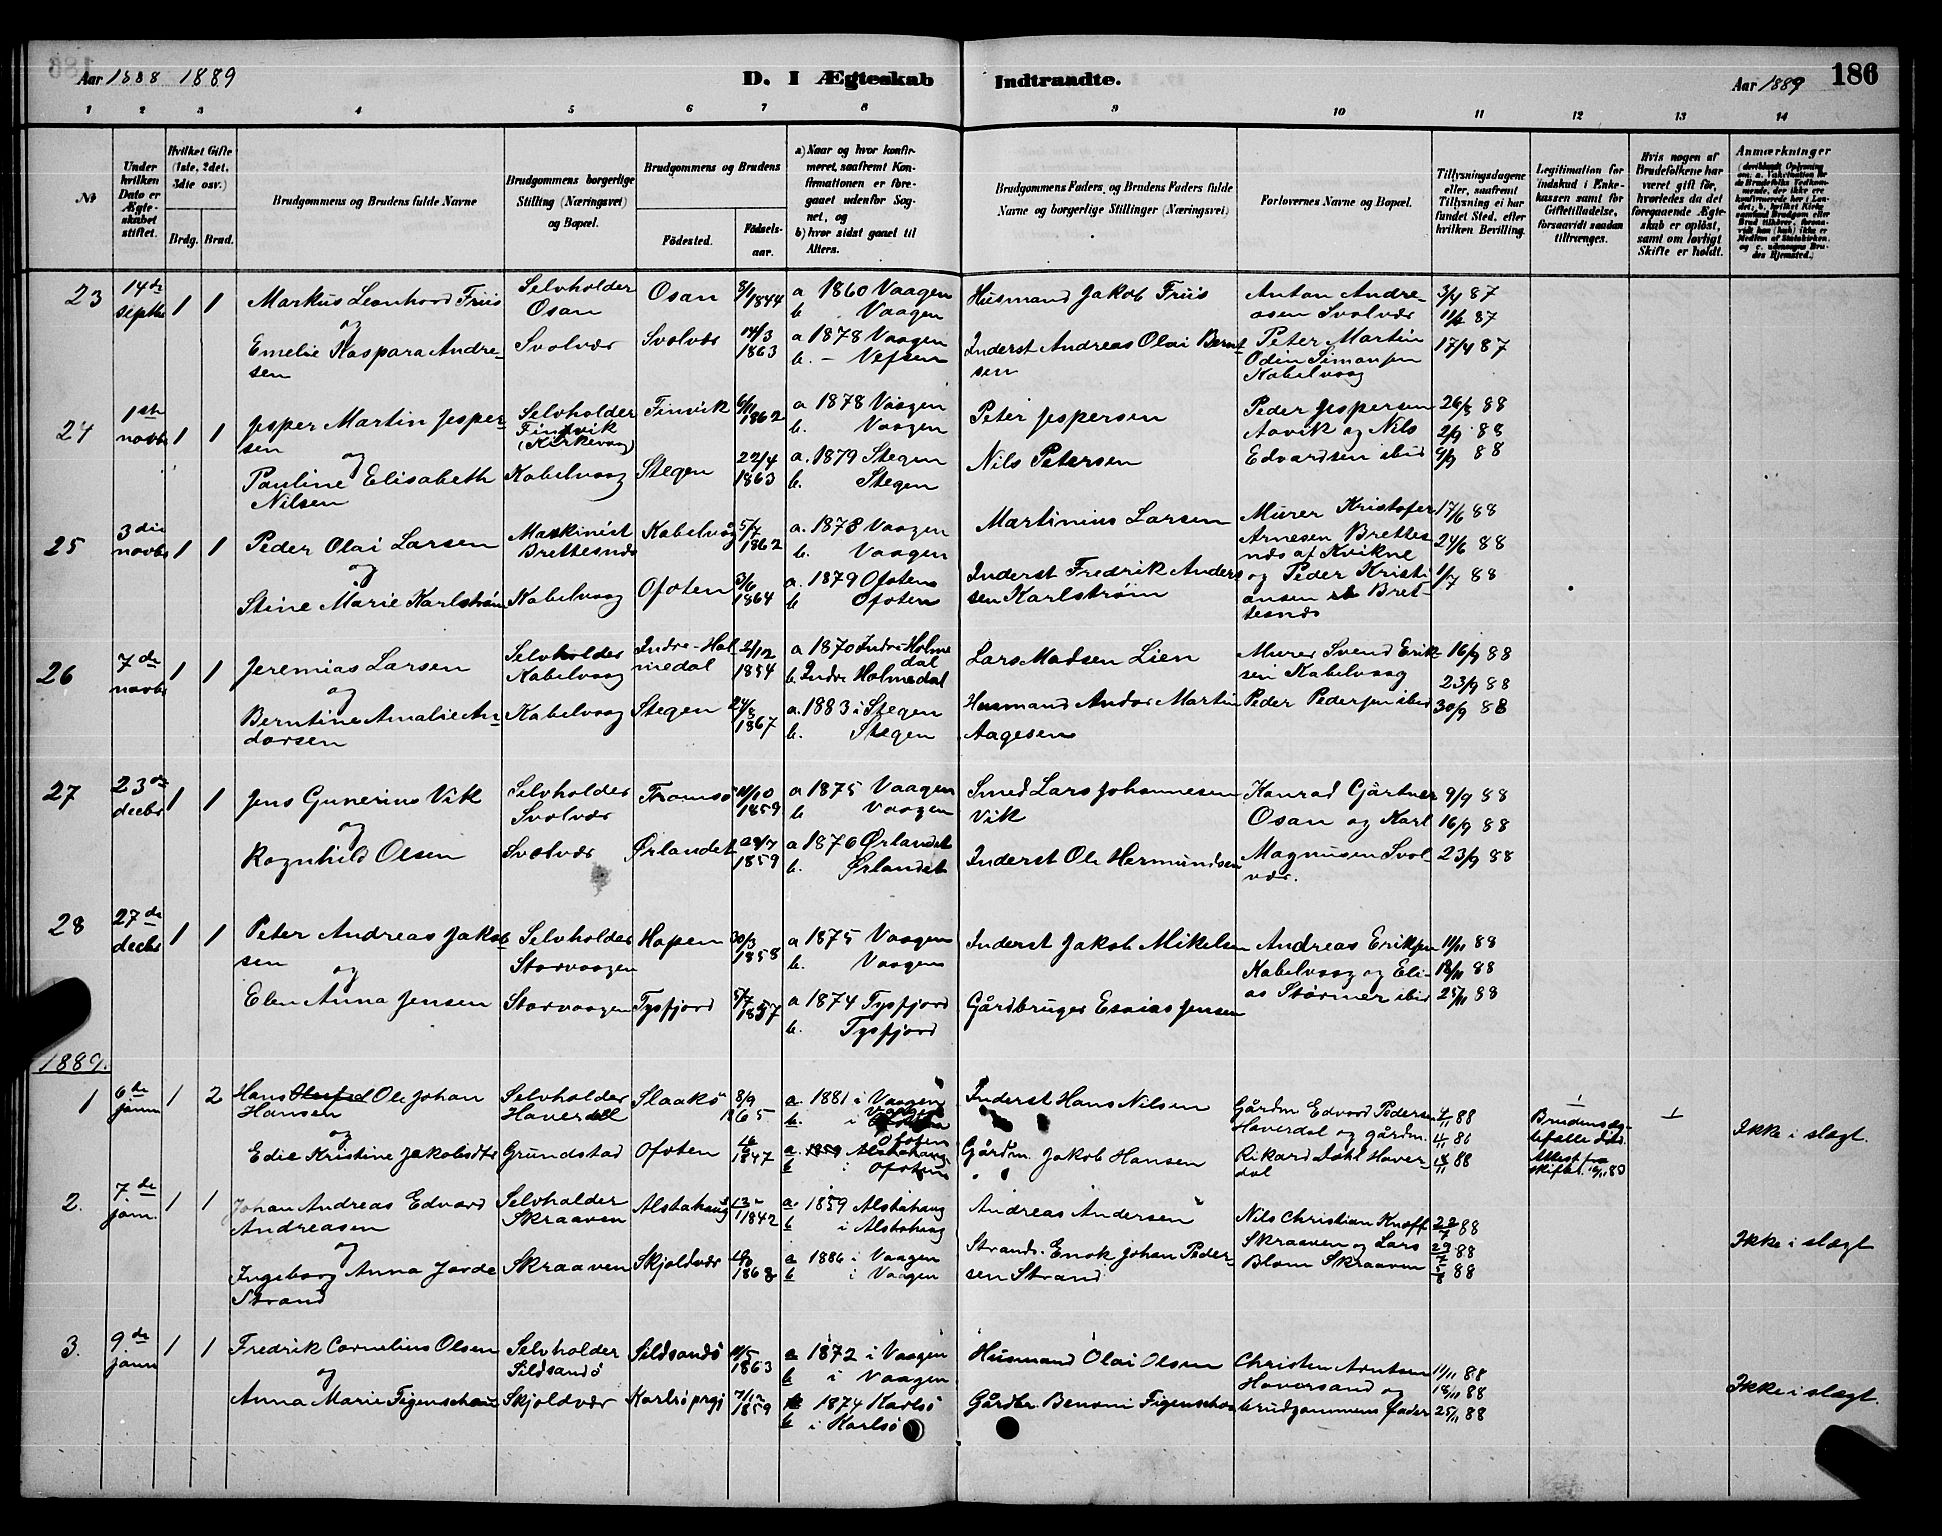 Aar 1888 1889
D. I Ægteskab Indtraadte.
Aar 1889 186
1 2 3 4 5 6 7 8 9 10 11 12 13 14
№
Under hvilken Dato er Ægteskabet stiftet.
Hvilket Gifte (1ste, 2det, 3die osv.)
Brdg. Brud.
Brudgommens og Brudens fulde Navne
Brudgommens borgerlige Stilling (Næringsvei) og Bopæl.
Brudgommens og Brudens
Fødested.
Fødselsaar.
a) Naar og hvor konfirmeret, saafremt Konfirmationen er foregaaet udenfor Sognet, og
b) hvor sidst gaaet til Alters.
Brudgommens Faders, og Brudens Faders fulde Navne og borgerlige Stillinger (Næringsvei)
Forlovernes Navne og Bopæl.
Tillysningsdagene eller, saafremt Tillysning ei har fundet Sted, efter hvilken Bevilling.
Legitimation for Indskud i Enkekassen samt for Giftetilladelse, forsaavidt saadan tiltrænges.
Hvis nogen af Brudefolkene har været gift før, hvorledes da det foregaaende Ægteskab er opløst, samt om lovligt Skifte er holdt.
Anmærkninger
23 14de septbr 1 1 Markus Leonhard Friis Selvholder Osan Osan 8/1 1844 a 1860 Vaagen b. Vaagen Husmand Jakob Friis Anton Andreasen Svolvær 3/4 87 11/4 87
og
Emelie Kaspara Andresen Svolvær Svolvær 14/3 1863 a 1878 Vaagen b. - Vefsen Inderst Andreas Olai Berntsen Peter Martin Odin Simonsen Kabelvaag 17/4 87
24 1ste novbr 1 1 Jesper Martin Jespersen Selvholder Finvik (Kirkevaag) Finvik 6/11 1862 a 1878 Vaagen b. Vaagen Peter Jespersen Peder Jespersen Aavik og Nils Edvardsen ibid 26/8 88 2/9 88 9/9 88
og
Pauline Elisabeth Nilsen Kabelvaag Stegen 22/4 1863 a. 1879 Stegen b. Stegen Nils Petersen
25 3die novbr 1 1 Peder Olai Larsen Maskinist Brettesnæs Kabelvåg 5/7 1862 a. 1878 Vaagen b. Vaagen Martinius Larsen Murer Kristofer Arnesen Brettesnæs af Kvikne og Peder Kristiansen Brettesnæs 17/6 88 24/6 88 1/7 88
og
Stine Marie Karlstrøm Kabelvaag Ofoten 1864 a. 1879 Ofoten b Ofoten Inderst Fredrik Andersen Karlstrøm
26 7de novbr 1 1 Jeremias Larsen Selvholder Kabelvaag Indre-Holmedal 2/12 1854 a 1870 Indre Holmedal b. Indre Holmedal Lars Madsen Lien Murer Svend Eriksen Kabelvaag Peder Pedersen ibid 16/9 88 23/9 88 30/9 88
og
Berntine Amalie Andorsen Kabelvaag Stegen 24/8 1867 a. 1883 i Stegen b. Stegen Husmand Andor Martin Aagesen
27 23de decbr 1 1 Jens Gunerius Vik Selvholder Svolvær Tromsø 11/10 1859 a 1875 Vaagen b Vaagen Smed Lars Johannesen Vik Konrad Gjärtner Osan og Karl Magnusen Svolvær. 9/9 88 16/9 88 23/9 88
og
Ragnhild Olsen Svolvær Ørlandet 29/7 1859 a 1876 Ørlandet b. Ørlandet Inderst Ole Hermundsen
28 27de decbr 1 1 Peter Andreas Jakobsen Selvholder Storvaagen Hopen 30/3 1858 a 1875 Vaagen b. Vaagen Inderst Jakob Mikelsen Andreas Eriksen Kabelvaag og Elias Størmer ibid 11/11 88 18/11 88 25/11 88
og
Elen Anna Jensen Storvaagen Tysfjord 5/7 1857 a 1874 Tysfjord b. Tysfjord Gårdbruger Esaias Jensen
1889.
1 6te janu 1 2 Hans Ole Johan Hansen Selvholder Haverdal Slaakö 8/9 1865 a. 1881 i Vaagen b. i Vaagen Inderst Hans Nilsen Gårdm Edvard Pedersen Haverdal og gårdm. Rikard Dahl Haverdal 88 18/11 88 1 1 Ikke i slægt.
og
Edie Kristine Jakobsdtr Grundstad Ofoten 1847 a. 1859 Ofoten b i Ofoten Gårdm. Jakob Hansen Attest fra skifter.
2. 7de jan. 1 1 Johan Andreas Edvard Andreasen Selvholder Skraaven Alstahaug 1842 a 1859 Alstahaug b i Alstahaug Andreas Andersen Nils Christian Knoff Skraaven og Lars Blom Skraaven 22/7 88 29/7 88 5/8 88 Ikke i slægt
og
Ingeborg Anna Jorde Strand Skraaven Skjoldvær 1868 a 1886 i Vaagen b i Vaagen Strands. Enok Johan Pedersen Strand
3. 9de janu 1 1 Fredrik Cornelius Olsen Selvholder Sildsandö Sildsandö 11/5 1863 a 1872 i Vaagen b i Vaagen Husmand Olai Olsen Christen Arntsen Haversand og brudgommens fader 11/11 88 18/11 88 25/11 88 Ikke i slægt.
og
Anna Marie Figenschau Skjoldvær Karlsö prgj 7/12 1859 a 1874 Karlsö b i Karlsö Gårdbr. Benoni Figenschau